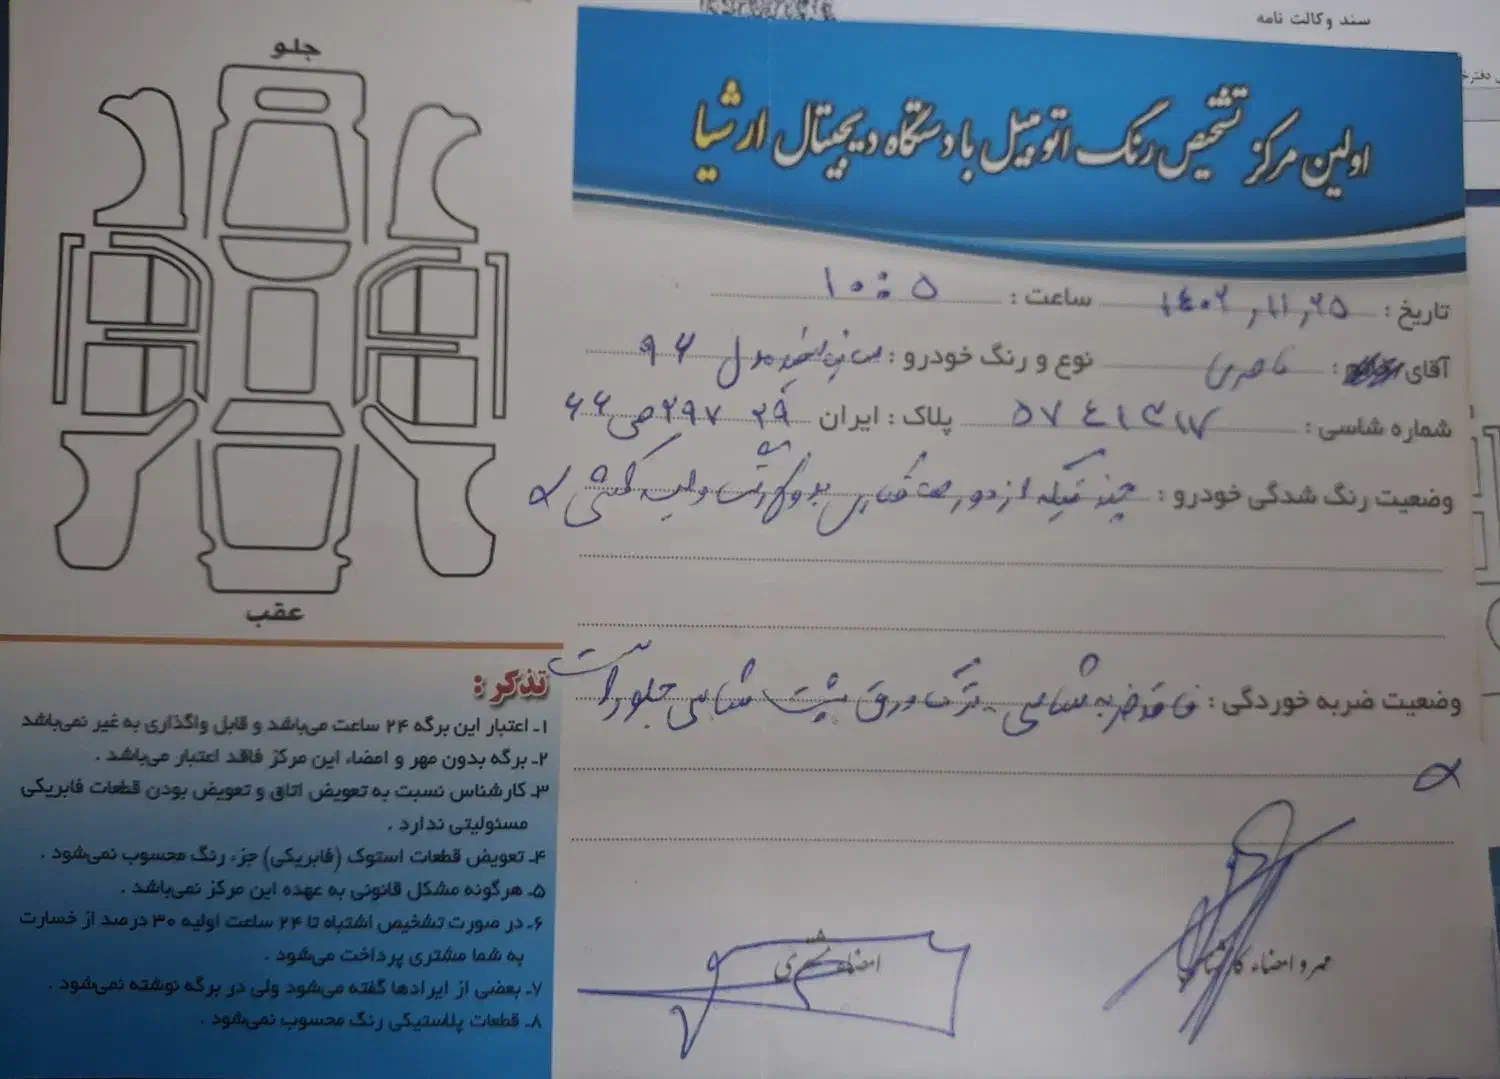 سند وکالت نامه
اولین مرکز تشخیص رنگ اتومبیل با دستگاه دیجیتال ارشیا
تاریخ : ۱۴۰۲,۱۱,۲۵ ساعت : ۱۰:۰۵
آقای : نوع و رنگ خودرو : سفید مدل ۹۶
شماره شاسی : ۵۷۴۱۳۱۷ پلاک : ایران
وضعیت رنگ شدگی خودرو : چند تیکه از دور
وضعیت ضربه خوردگی : فاقد ضربه شاسی
مهر و امضاء کارشناس
امضاء مشتری
جلو
عقب
تذکر :
۱ـ اعتبار این برگه ۲۴ ساعت می‌باشد و قابل واگذاری به غیر نمی‌باشد
۲ـ برگه بدون مهر و امضاء این مرکز فاقد اعتبار می‌باشد .
۳ـ کارشناس نسبت به تعویض اتاق و تعویض بودن قطعات فابریکی
مسئولیتی ندارد .
۴ـ تعویض قطعات استوک (فابریکی) جزء رنگ محسوب نمی‌شود .
۵ـ هرگونه مشکل قانونی به عهده این مرکز نمی‌باشد .
۶ـ در صورت تشخیص اشتباه تا ۲۴ ساعت اولیه ۳۰ درصد از خسارت
به شما مشتری پرداخت می‌شود .
۷ـ بعضی از ایرادها گفته می‌شود ولی در برگه نوشته نمی‌شود .
۸ـ قطعات پلاستیکی رنگ محسوب نمی‌شود .